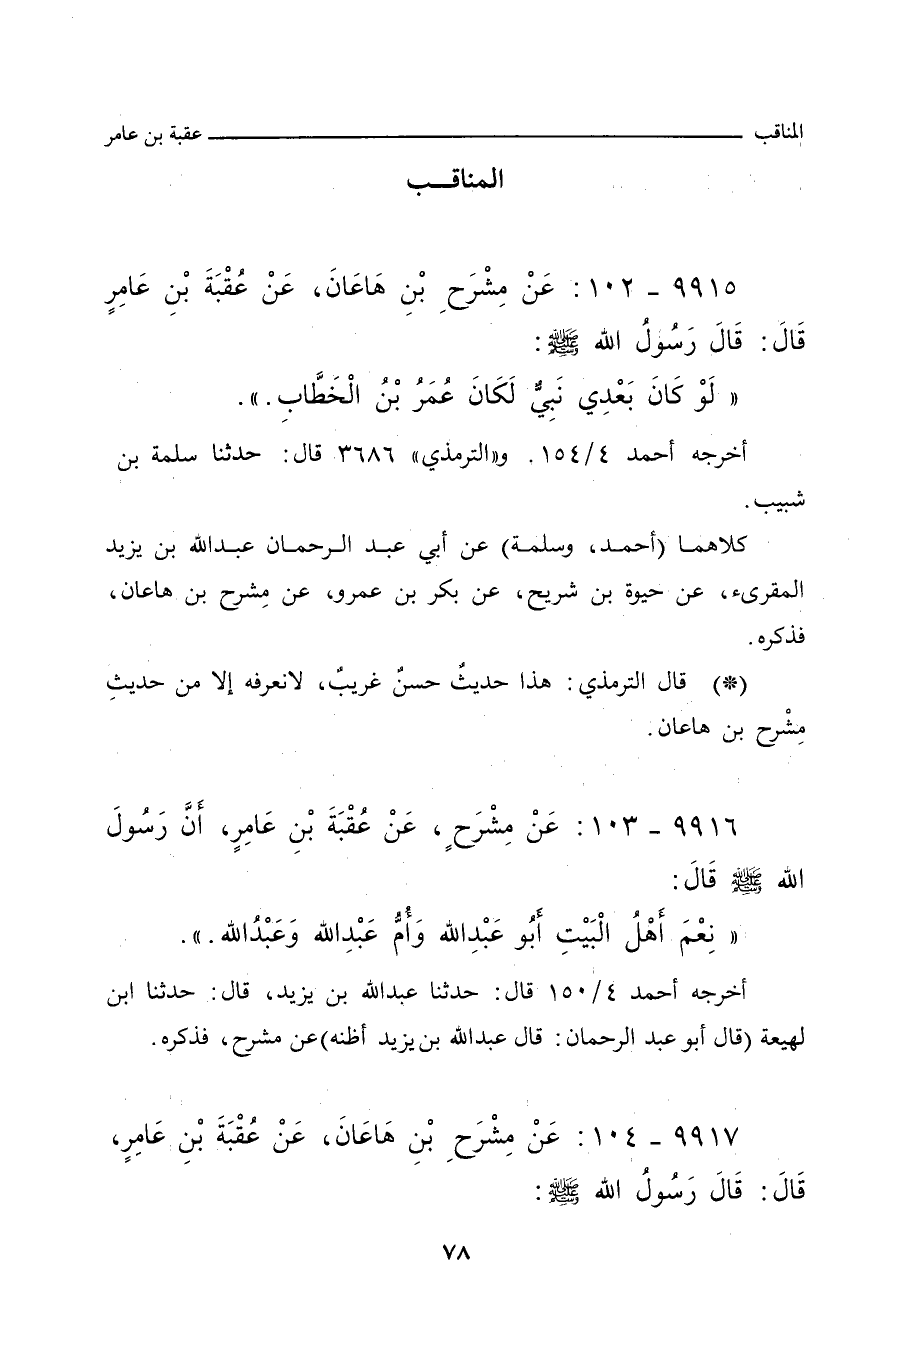 المناقب عقبة بن عامر
المناقـــب
٩٩١٥ ـ ١٠٢ : عَنْ مِشْرَحِ بْنِ هَاعَانَ، عَنْ عُقْبَةَ بْنِ عَامِرٍ
قَالَ: قَالَ رَسُولُ الله ﷺ:
« لَوْ كَانَ بَعْدِي نَبِيٌّ لَكَانَ عُمَرُ بْنُ الْخَطَّابِ.».
أخرجه أحمد ١٥٤/٤. و«الترمذي» ٣٦٨٦ قال: حدثنا سلمة بن
شبيب.
كلاهمـا (أحمـد، وسلمـة) عن أبي عبـد الـرحمـان عبـدالله بن يزيد
المقرىء، عن حيوة بن شريح، عن بكر بن عمرو، عن مِشرح بن هاعان،
فذكره.
(*) قال الترمذي: هذا حديثٌ حسنٌ غريبٌ، لانعرفه إلا من حديثِ
مِشْرح بن هاعان.
٩٩١٦ ـ ١٠٣ : عَنْ مِشْرَحٍ، عَنْ عُقْبَةَ بْنِ عَامِرٍ، أَنَّ رَسُولَ
الله ﷺ قَالَ:
« نِعْمَ أَهْلُ الْبَيْتِ أَبُو عَبْدِالله وَأُمُّ عَبْدِالله وَعَبْدُالله.».
أخرجه أحمد ١٥٠/٤ قال: حدثنا عبدالله بن يزيد، قال: حدثنا ابن
لهيعة (قال أبو عبد الرحمان: قال عبدالله بن يزيد أظنه)عن مشرح، فذكره.
٩٩١٧ ـ ١٠٤ : عَنْ مِشْرَحِ بْنِ هَاعَانَ، عَنْ عُقْبَةَ بْنِ عَامِرٍ،
قَالَ: قَالَ رَسُولُ الله ﷺ:
٧٨